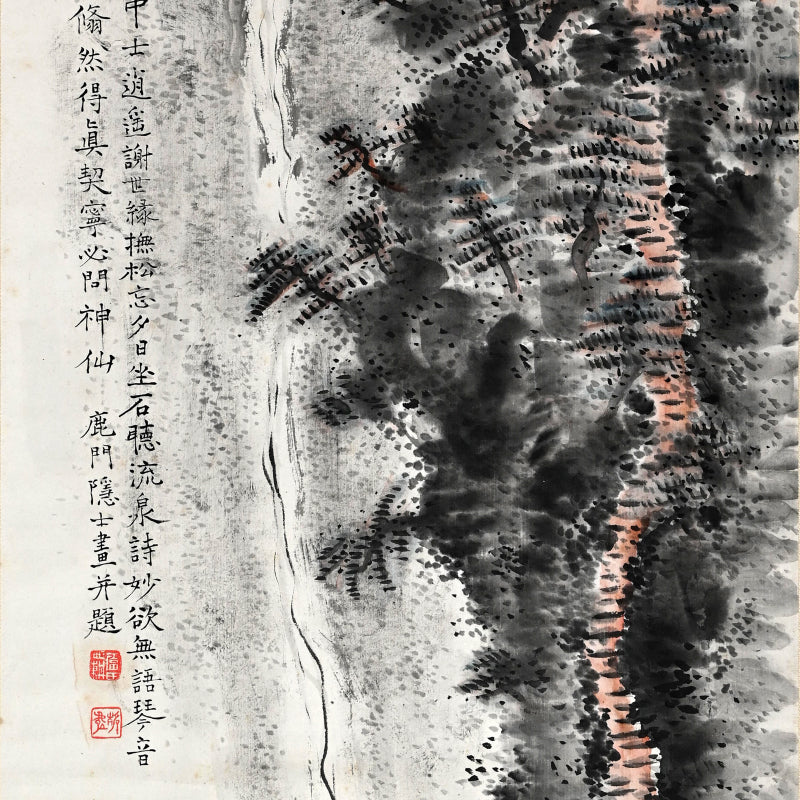 中士逍遥謝世緣撫松忘夕日坐石聽流泉詩妙欲無語琴音
翛然得眞契寧必問神仙 鹿門隱士畫并題